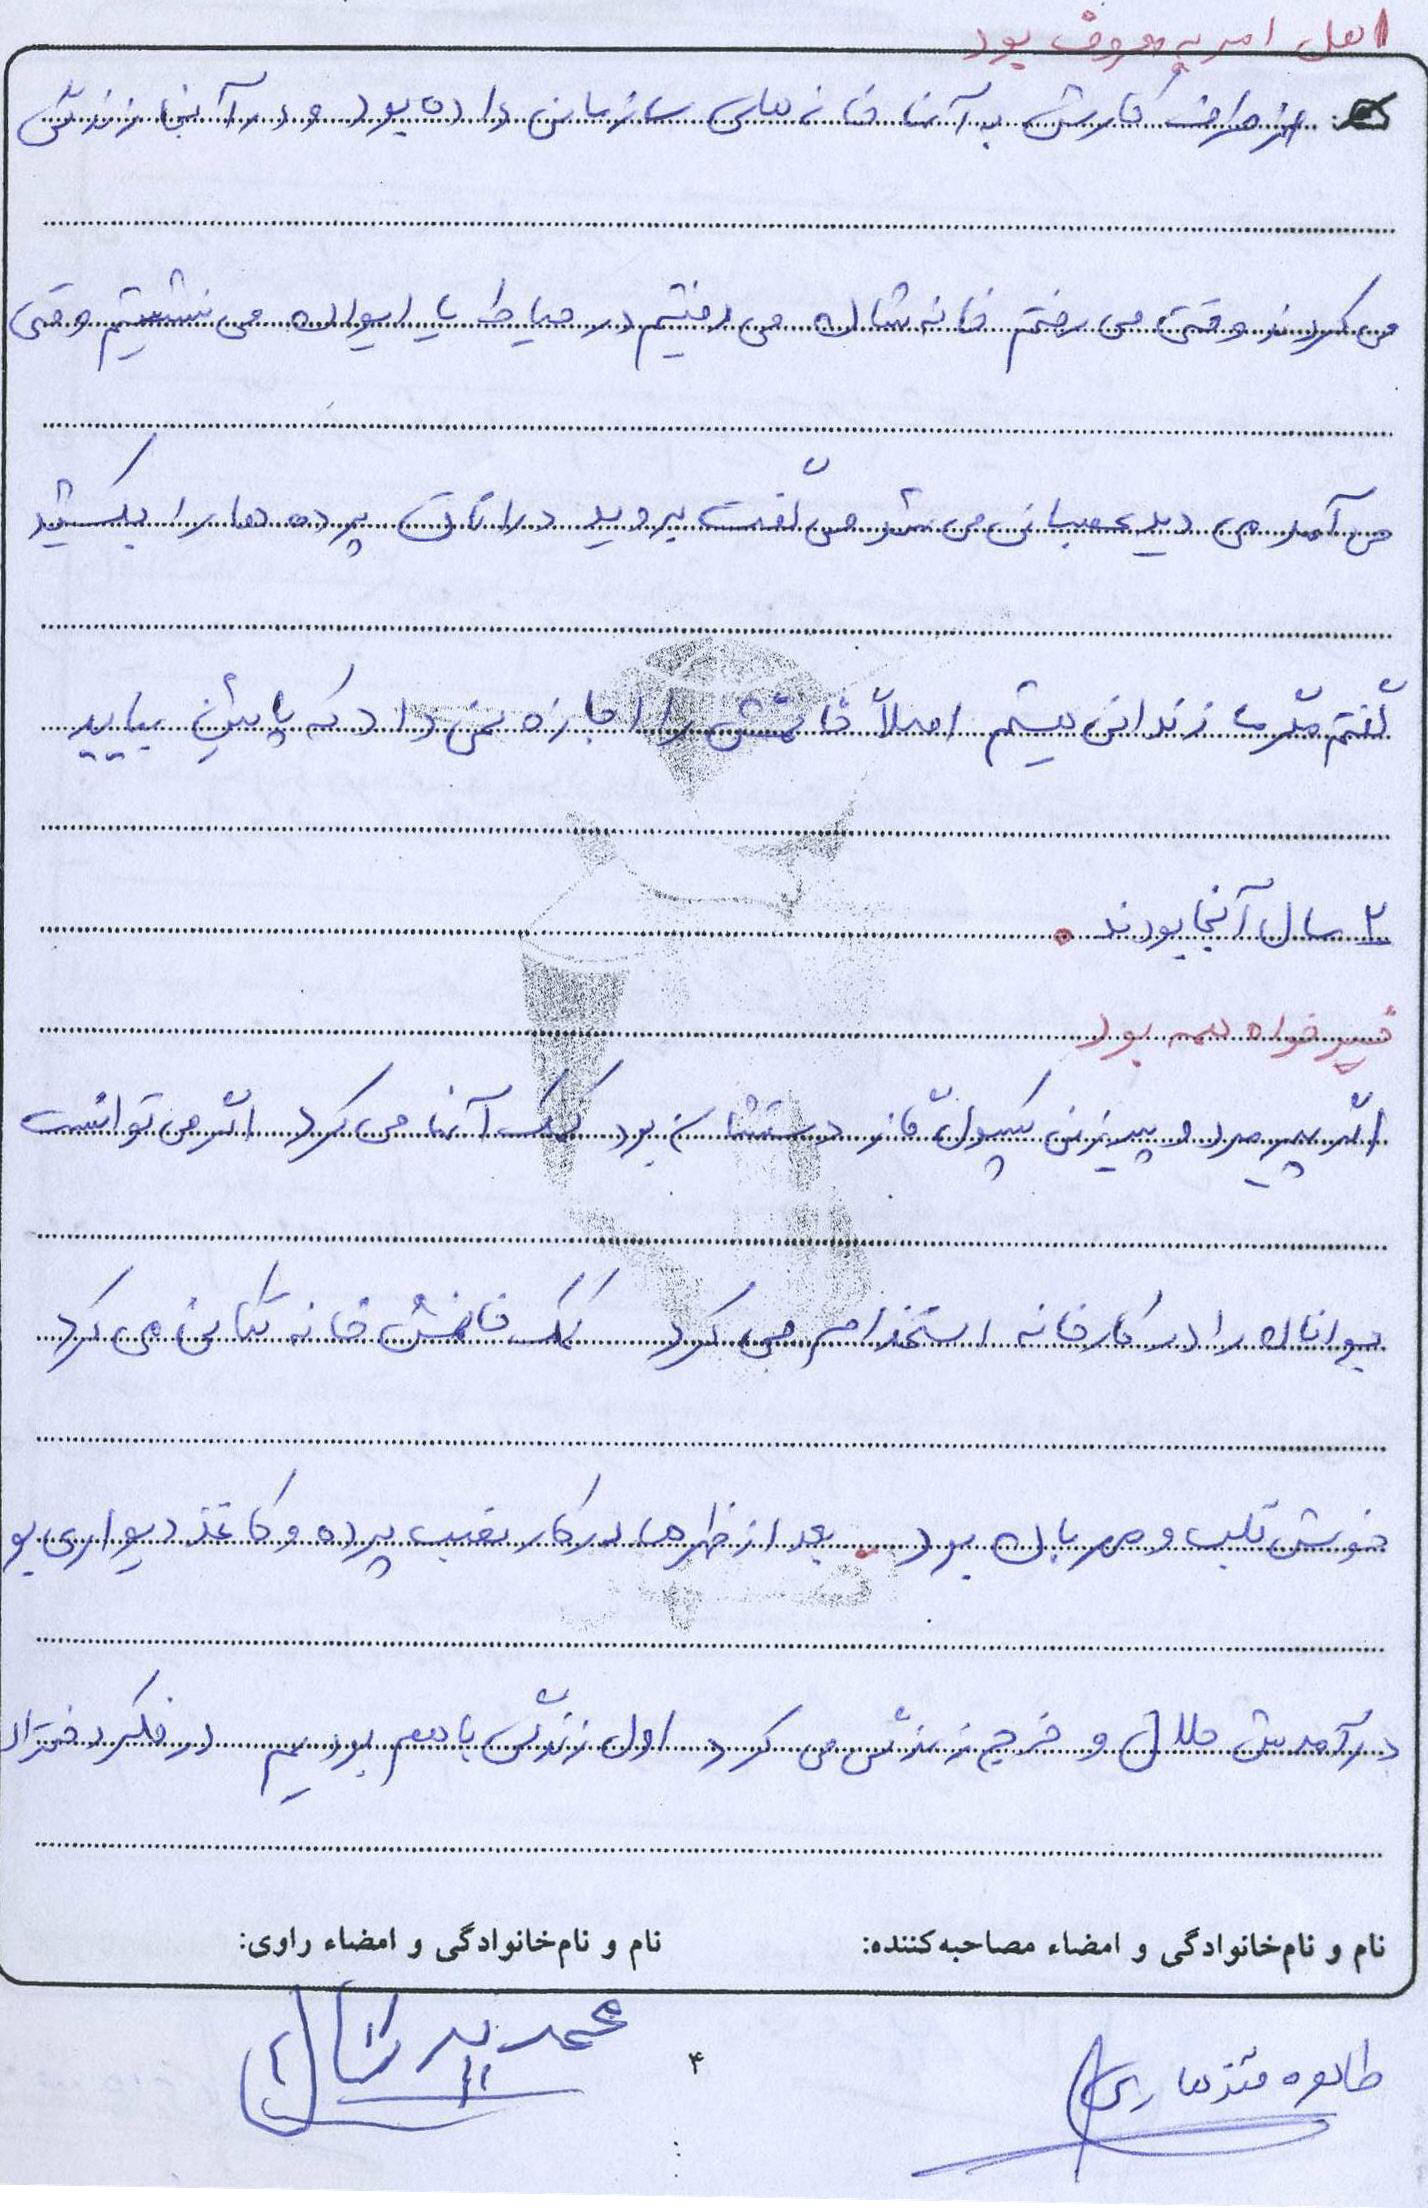 اهل امر به معروف بود
از طرف کارش به آنها خانه های سازمانی داده بود و در آنجا زندگی
می کردند وقتی می رفتم خانه شان می رفتیم در حیاط یا ایوان می نشستیم وقتی
می آمد می دید عصبانی می شد می گفت بروید در اتاق پرده ها را بکشید
گفتم مگر ما زندانی هستیم اصلاً خانمش را اجازه نمی داد که پایین بیاید
۲ سال آنجا بودند
خیرخواه همه بود
اگر پیرمرد و پیرزنی کپسول گاز دستشان بود کمک آنها می کرد اگر می توانست
جوانان را در کارخانه استخدام می کرد کمک خانمش خانه تکانی می کرد
خوش قلب و مهربان بود بعد از ظهرها در کار نصب پرده و کاغذ دیواری بو
درآمدش حلال و خرج زندگی می کرد اول زندگی با هم بودیم در فکر دختران
نام و نام‌خانوادگی و امضاء مصاحبه‌کننده:
نام و نام‌خانوادگی و امضاء راوی:
طاهره قندهاری
محمد
۴